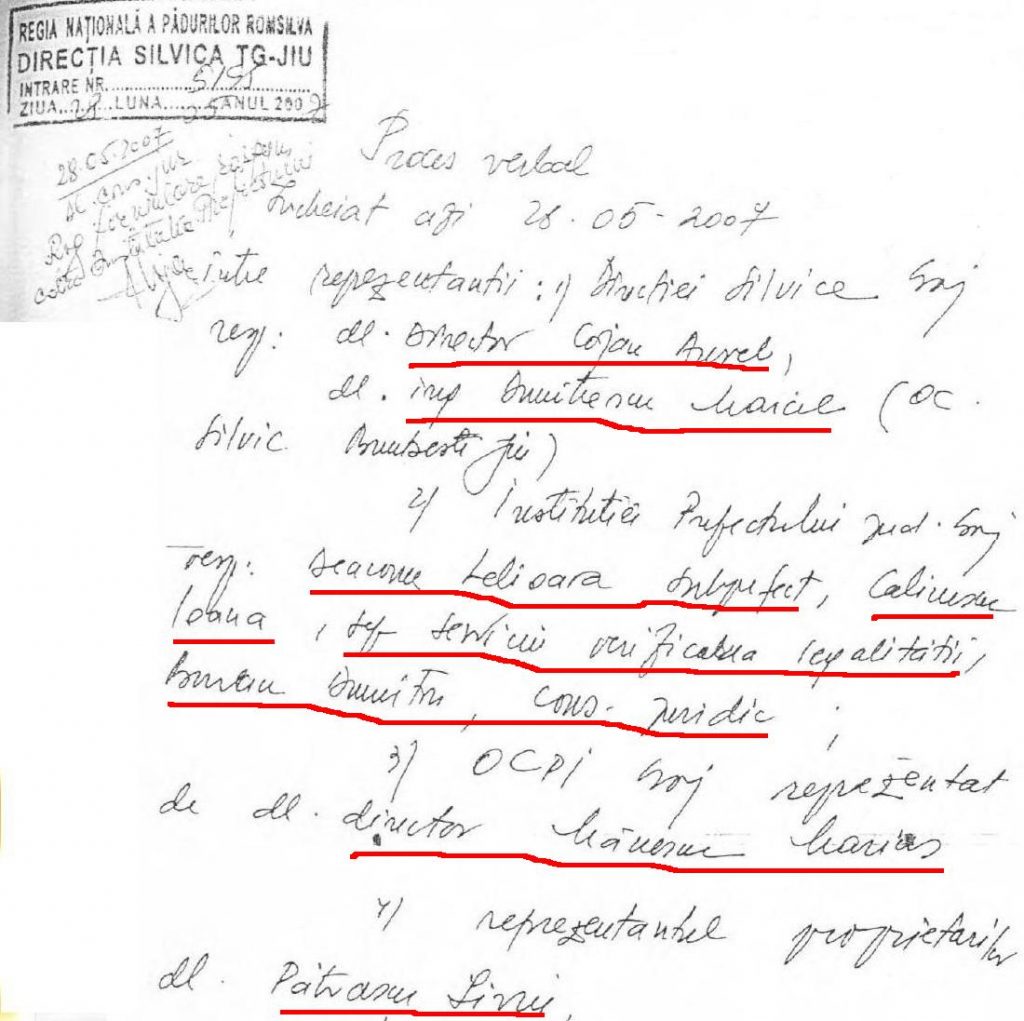 REGIA NAȚIONALĂ A PĂDURILOR ROMSILVA
DIRECȚIA SILVICA TG-JIU
INTRARE NR. 5195
ZIUA 28 LUNA 05 ANUL 2007
28.05.2007
Dl. cons. jur.
Rog formulare răspuns
către Instituția Prefectului
Proces verbal
Încheiat azi 28.05-2007
între reprezentantii: 1) Direcției Silvice Gorj
resp: dl. Director Cojan Aurel,
dl. ing Dumitrescu Maricel (OC.
Silvic Bumbesti Jiu)
2) Institutiei Prefectului jud. Gorj
resp: Deaconu Lelioara subprefect, Calinescu
Ioana, șef serviciu verificarea legalitătii,
Dumitru, cons. juridic;
3) OCPI Gorj reprezentat
de dl. director Mănescu Marius
4) reprezentantul proprietarilor
dl. Pătrascu Liviu,